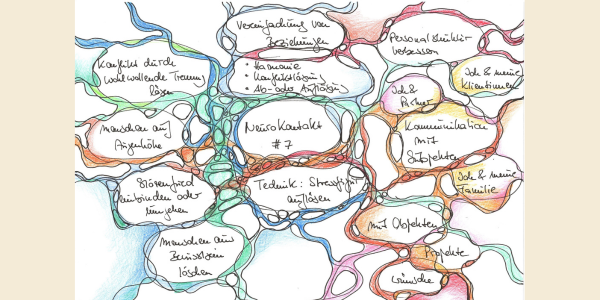 Vereinfachung von
Beziehungen
• Harmonie
• Konfliktlösung
• Ab- oder Auflösung
Personalstruktur
verbessern
Konflikt durch
wohlwollende Trennung
lösen
Ich &
Partner
Ich & meine
Klientinnen
Menschen auf
Augenhöhe
NeuroKontakt
#7
Kommunikation
mit
Subjekten
Störenfried
einbinden oder
umgehen
Technik: Stressfigur
auflösen
Ich & meine
Familie
mit Objekten
Menschen aus
Bewusstsein
löschen
Projekte
Wünsche